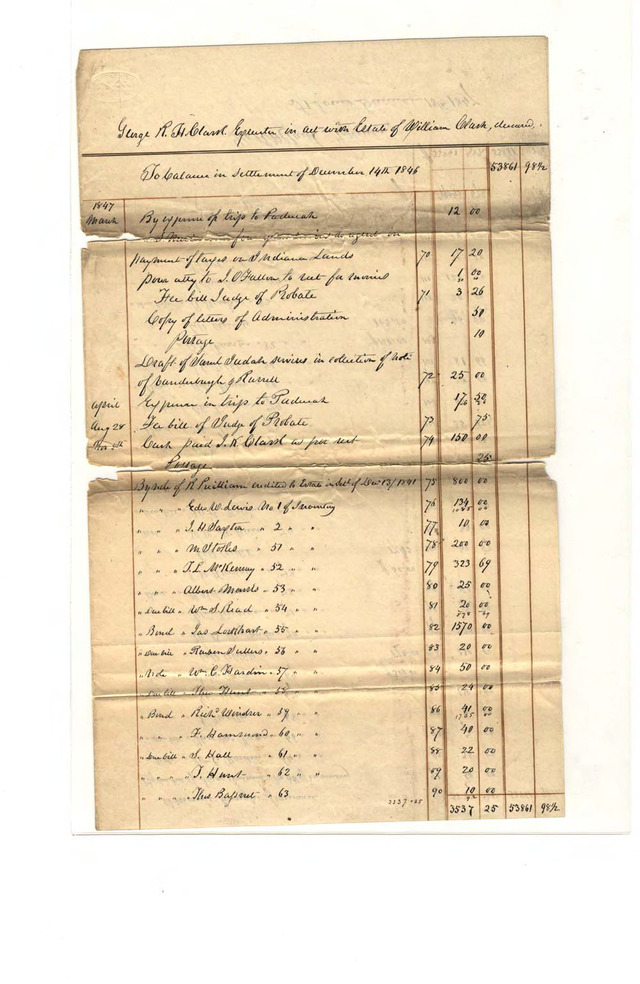 George R. H. Clark Executor in act with Estate of William Clark, deceased.
To balance in settlement of December 14th 1846 53861 98½
1847
March By expense of trip to Paducah 12 00
agent on
payment of taxes on Indiana Lands 70 17 20
powr atty to J. O'Fallon to for monies 1 00
Fee bill Judge of Probate 71 3 26
Copy of letters of Administration 50
Postage 10
Draft of Saml Judah services in collection of note
of Vanderburgh & Harrell 72 25 00
April Expense in trip to Paducah 17 50
Aug 28 Fee bill of Judge of Probate 73 75
Cash paid J. K. Clark as per rect 74 150 00
Postage 25
By note of R Pulliam credited to Estate in Setl of Decr 13/1841 75 800 00
" " " Edw. W. Lewis No 1 of Inventory 76 134 00
" " " J. H. " 2 " " 77 10 00
" " " M. Stokes " 51 " " 78 200 00
" " " T. L. McKenney " 52 " " 79 323 69
" " " Albert " 53 " " 80 25 00
" Due bill " Wm S. Read " 54 " " 81 20 00
" Bond " Jas Lockhart " 55 " " 82 1570 00
" Due bill " Reuben " 56 " " 83 20 00
" Note " Wm C. Hardin " 57 " " 84 50 00
" Due bill " Hunt " 58 " " 85 24 00
" Bond " Richd Windser " 59 " " 86 41 00
" " " F. Hammond " 60 " " 87 40 00
" Due bill " S. Hall " 61 " " 88 22 00
" " " T. Hunt " 62 " " 89 20 00
" " " Thos " 63 90 10 00
3537.25 3537 25 53861 98½